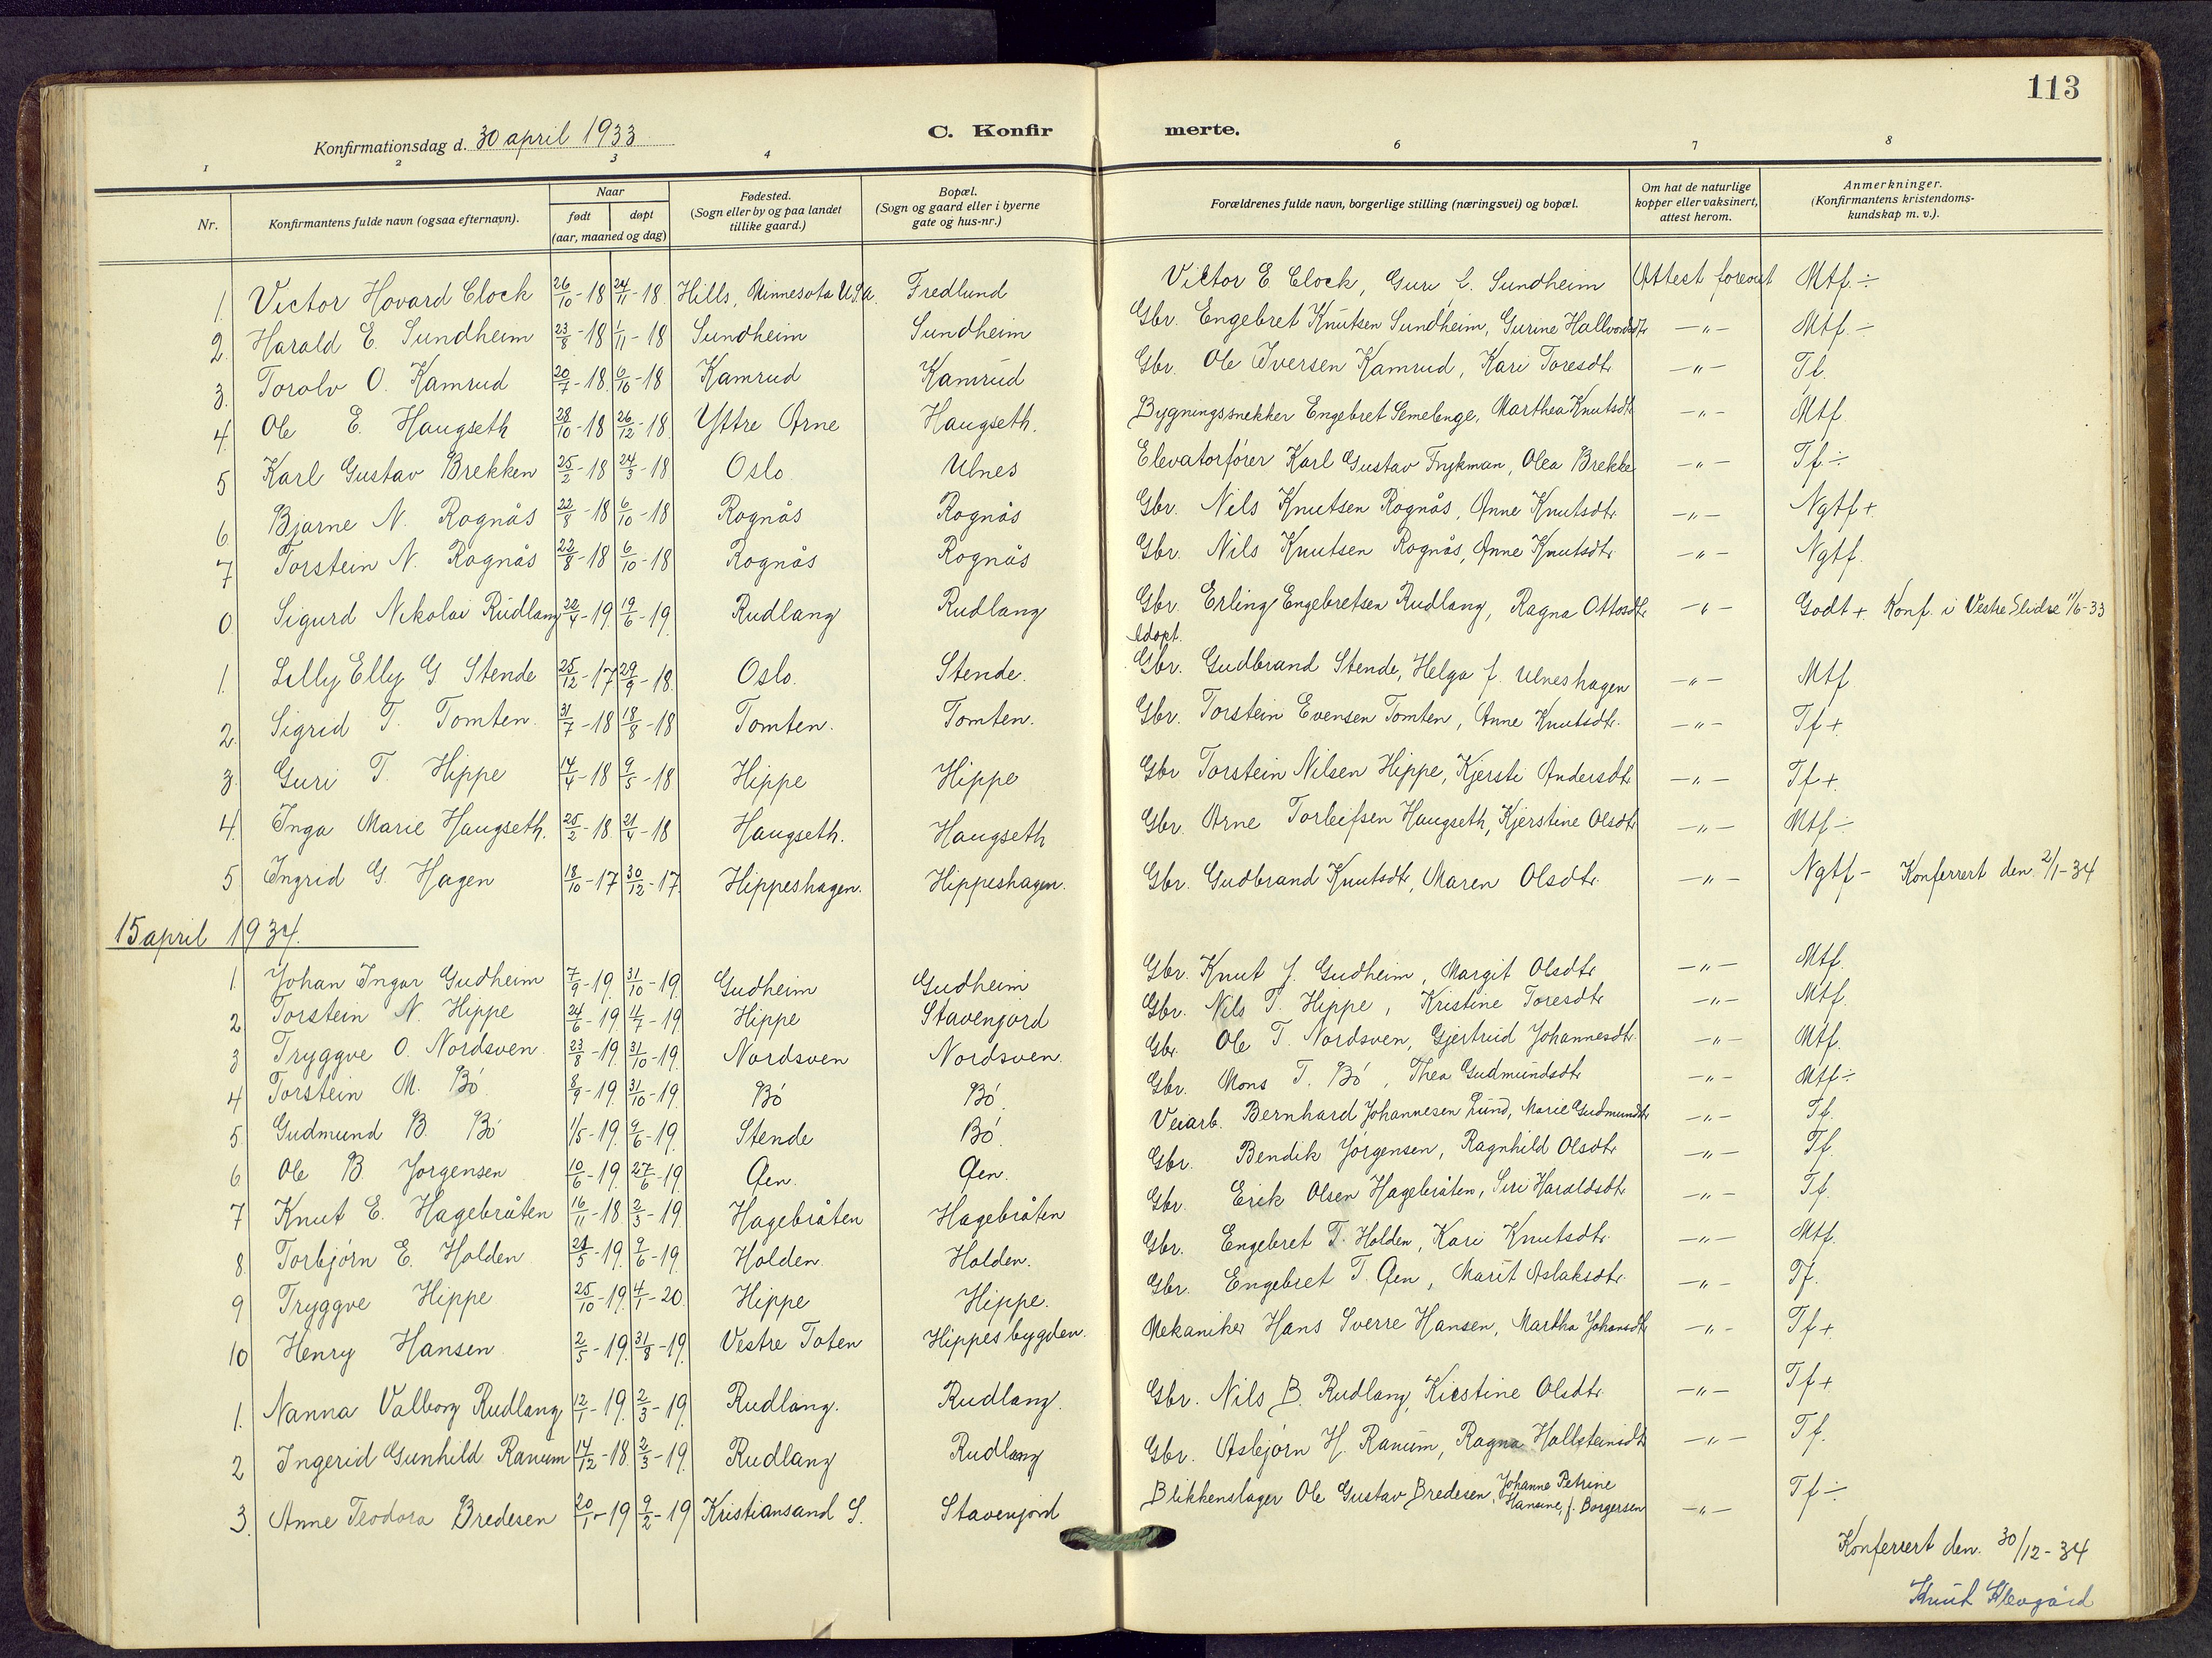 113
Konfirmationsdag d. 30 april 1933
C. Konfir merte.
1 2 3 4 6 7 8
Nr.
Konfirmantens fulde navn (ogsaa efternavn).
Naar
født døpt
(aar, maaned og dag)
Fødested.
(Sogn eller by og paa landet
tillike gaard.)
Bopæl.
(Sogn og gaard eller i byerne
gate og hus-nr.)
Forældrenes fulde navn, borgerlige stilling (næringsvei) og bopæl.
Om hat de naturlige
kopper eller vaksinert,
attest herom.
Anmerkninger.
(Konfirmantens kristendoms-
kundskap m. v.).
1. Victor Hovard Clock 26/10-18 24/11-18. Hills, Minnesota U.S.A. Fredlund Victor E Clock, Guri L. Sundheim Attest forevist Mtf. ÷
2. Harald E. Sundheim 23/8-18 1/11-18 Sundheim Sundheim Gbr. Engebret Knutsen Sundheim, Gurine Hallvordsdtr -"- Mtf. -
3. Torolv O. Kamrud 20/7-18. 6/10-18 Kamrud Kamrud Gbr. Ole Iversen Kamrud, Kari Toresdtr -"- Tf.
4. Ole E. Haugseth 28/10-18 26/12-18. Yttre Arne Haugseth. Bygningssnekker Engebret Semelenge, Marthea Knutsdtr -"- Mtf.
5 Karl Gustav Brekken 25/2-18 24/3-18 Oslo Ulnes Elevatorfører Karl Gustav Frykman, Olea Brekke -"- Tf ÷
6 Bjarne N. Rognås 22/8-18 6/10-18 Rognås Rognås Gbr. Nils Knutsen Rognås, Anne Knutsdtr. -"- Ngtf +
7 Torstein N. Rognås 22/8-18 6/10-18 Rognås Rognås Gbr. Nils Knutsen Rognås, Anne Knutsdtr. -"- Ngtf.
0 Sigurd Nikolai Rudlang 22/4-19. 19/6-19. Rudlang Rudlang Gbr. Erling Engebretsen Rudlang, Ragna Ottosdtr. -"- Godt +. Konf. i Vestre Slidre 11/6-33
Adopt.
1. Lilly Elly G Stende 25/12-17 29/9-18. Oslo. Stende. Gbr. Gudbrand Stende, Helga f. Ulneshagen -"- Mtf
2. Sigrid T. Tomten. 31/7-18 18/8-18 Tomten. Tomten. Gbr. Torstein Evensen Tomten, Anne Knutsdtr. -"- Tf +
3. Guri T. Hippe 14/4-18 9/5-18 Hippe Hippe Gbr Torstein Nilsen Hippe, Kjersti Andersdtr -"- Tf +.
4. Inga Marie Haugseth. 25/2-18. 21/4-18 Haugseth. Haugseth Gbr. Arne Torleifsen Haugseth, Kjerstine Olsdtr -"- Mtf ÷
5 Ingrid G. Hagen 18/10-17 30/12-17 Hippeshagen. Hippeshagen. Gbr. Gudbrand Knutsdtr, Maren Olsdtr. -"- Ngtf - Konferrert den 2/1-34
15 april 1934.
1. Johan Ingar Gudheim 7/9-19. 31/10-19. Gudheim Gudheim Gbr. Knut J. Gudheim, Margit Olsdtr -"- Mtf.
2 Torstein N. Hippe 24/6-19. 4/7-19. Hippe Stavenjord Gbr. Nils T. Hippe, Kristine Toresdtr -"- Mtf.
3 Tryggve O. Nordsven. 23/8-19. 31/10-19. Nordsven Nordsven. Gbr. Ole T. Nordsven, Gjertrud Johannesdtr. -"- Mtf.
4 Torstein M. Bó 8/9-19. 31/10-19. Bó Bó. Gbr. Mons T. Bó, Thea Gudmundsdtr -"- Mtf ÷
5. Gudmund B. Bó 1/5-19. 9/6-19. Stende Bó. Veiarb. Bernhard Johannesen Lund, Marie Gudmundsdtr -"- Tf.
6 Ole B. Jorgensen 10/6-19. 27/6-19. Øen. Øen. Gbr. Bendik Jörgensen, Ragnhild Olsdtr -"- Tf.
7 Knut E. Hagebråten 16/11-18. 2/3-19. Hagebråten Hagebråten Gbr. Erik Olsen Hagebråten, Siri Haraldsdtr -"- Tf.
8. Torbjörn E. Holden 24/5-19. 9/6-19. Holden. Holden. Gbr. Engebret T. Holden, Kari Knutsdtr. -"- Mtf.
9 Tryggve Hippe 25/10-19. 4/1-20. Hippe Hippe. Gbr. Engebret T. Øen, Marit Aslaksdtr. -"- Tf.
10 Henry Hansen 2/5-19. 31/8-19. Vestre Toten Hippesbygden. Mekaniker Hans Sverre Hansen, Martha Johansdtr -"- Tf +.
1. Nanna Valborg Rudlang 12/1-19. 2/3-19. Rudlang. Rudlang. Gbr. Nils B. Rudlang, Kirstine Olsdtr. -"- Tf +
2 Ingerid Gunhild Ranum 14/12-18. 2/3-19. Rudlang Rudlang Gbr. Asbjörn H. Ranum, Ragna Hallsteinsdtr -"- Tf.
3. Anne Teodora Bredesen 20/1-19 9/2-19 Kristiansand S. Stavenjord Blikkenslager Ole Gustav Bredesen, Johanne Petrine Hansine, f. Borgersen -"- Tf ÷
Konferrert den. 30/12-34
Knut Klevgård